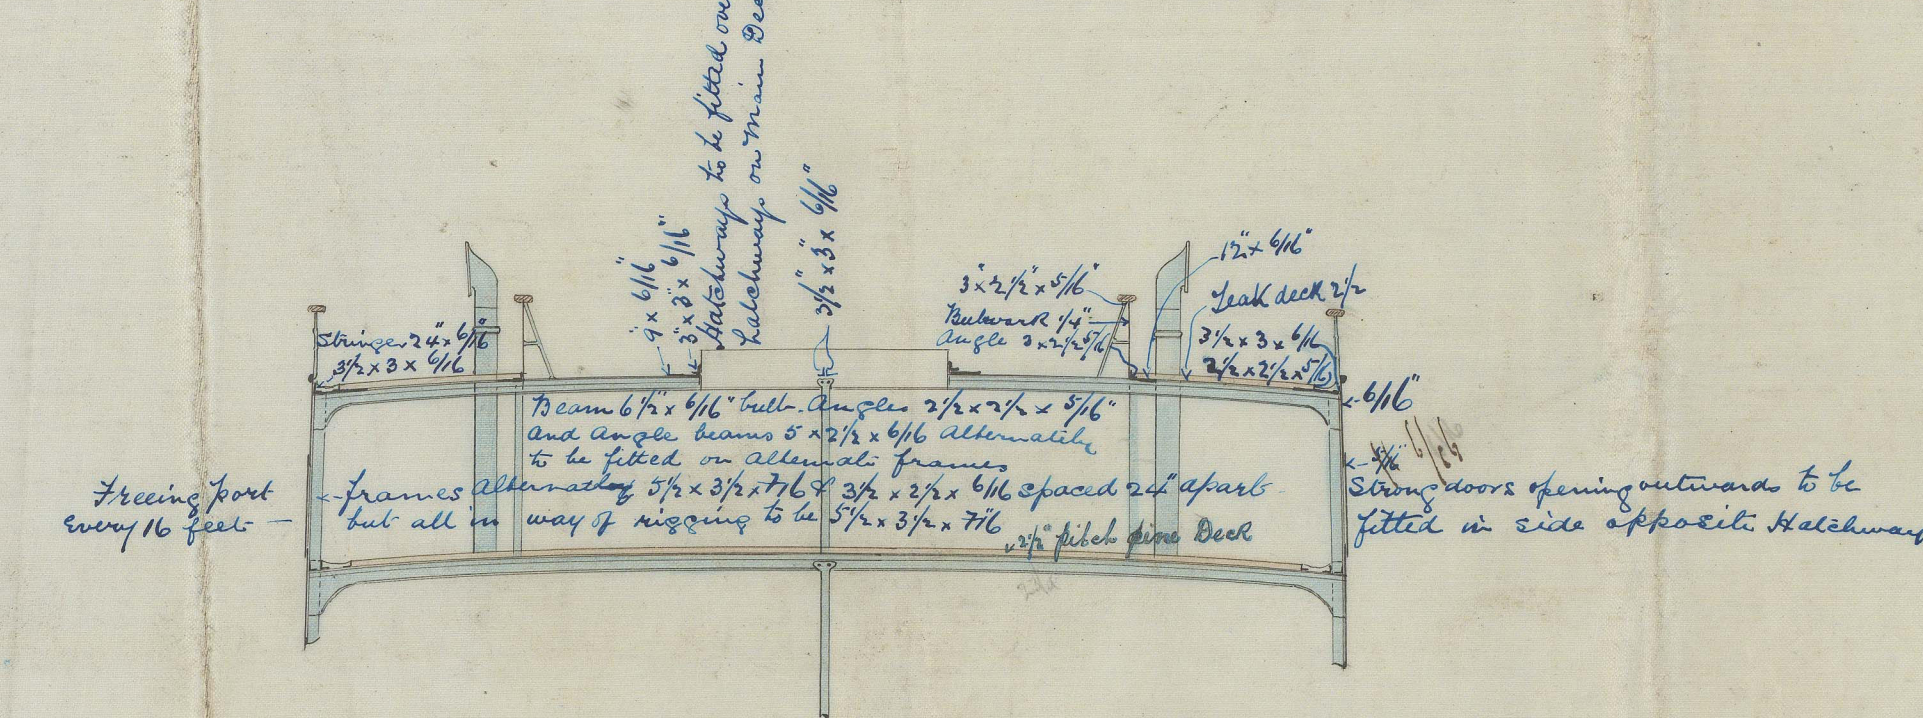 Hatchways to be fitted ove
hatchways on Main Dec
9" x 6/16"
3" x 3" x 6/16"
3 1/2" x 3" x 6/16"
Stringer 24" x 6/16"
3 1/2 x 3 x 6/16
3" x 2 1/2" x 5/16"
Bulwark 1/4"
Angle 3 x 2 1/2 5/16
12" x 6/16"
Teak deck 2 1/2
3 1/2 x 3 x 6/16
2 1/2 x 2 1/2 x 5/16
6/16"
5/16"
Beam 6 1/2" x 6/16" bulb. Angles 2 1/2 x 2 1/2 x 5/16"
and angle beams 5 x 2 1/2 x 6/16 Alternately
to be fitted on alternate frames
frames Alternately 5 1/2 x 3 1/2 x 7/16 & 3 1/2 x 2 1/2 x 6/16 spaced 24" apart
but all in way of rigging to be 5 1/2 x 3 1/2 x 7/16
Freeing port
Every 16 feet
2 1/2" pitch pine Deck
Strong doors opening outwards to be
fitted in side opposite Hatchway